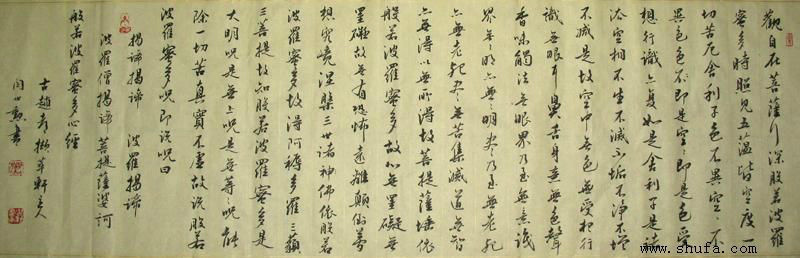 觀自在菩薩行深般若波羅
蜜多時照見五蘊皆空度一
切苦厄舍利子色不異空空不
異色色即是空空即是色受
想行識亦復如是舍利子是諸
法空相不生不滅不垢不淨不增
不減是故空中無色無受想行
識無眼耳鼻舌身意無色聲
香味觸法無眼界乃至無意識
界無無明亦無無明盡乃至無老死
亦無老死盡無苦集滅道無智
亦無得以無所得故菩提薩埵依
般若波羅蜜多故心無罣礙無
罣礙故無有恐怖遠離顛倒夢
想究竟涅槃三世諸佛依般若
波羅蜜多故得阿耨多羅三藐
三菩提故知般若波羅蜜多是
大明咒是無上咒是無等等咒能
除一切苦真實不虛故說般若
波羅蜜多咒即說咒曰
揭諦揭諦 波羅揭諦
波羅僧揭諦 菩提薩婆訶
般若波羅蜜多心經
古趙 草軒主人
書
www.shufa.com